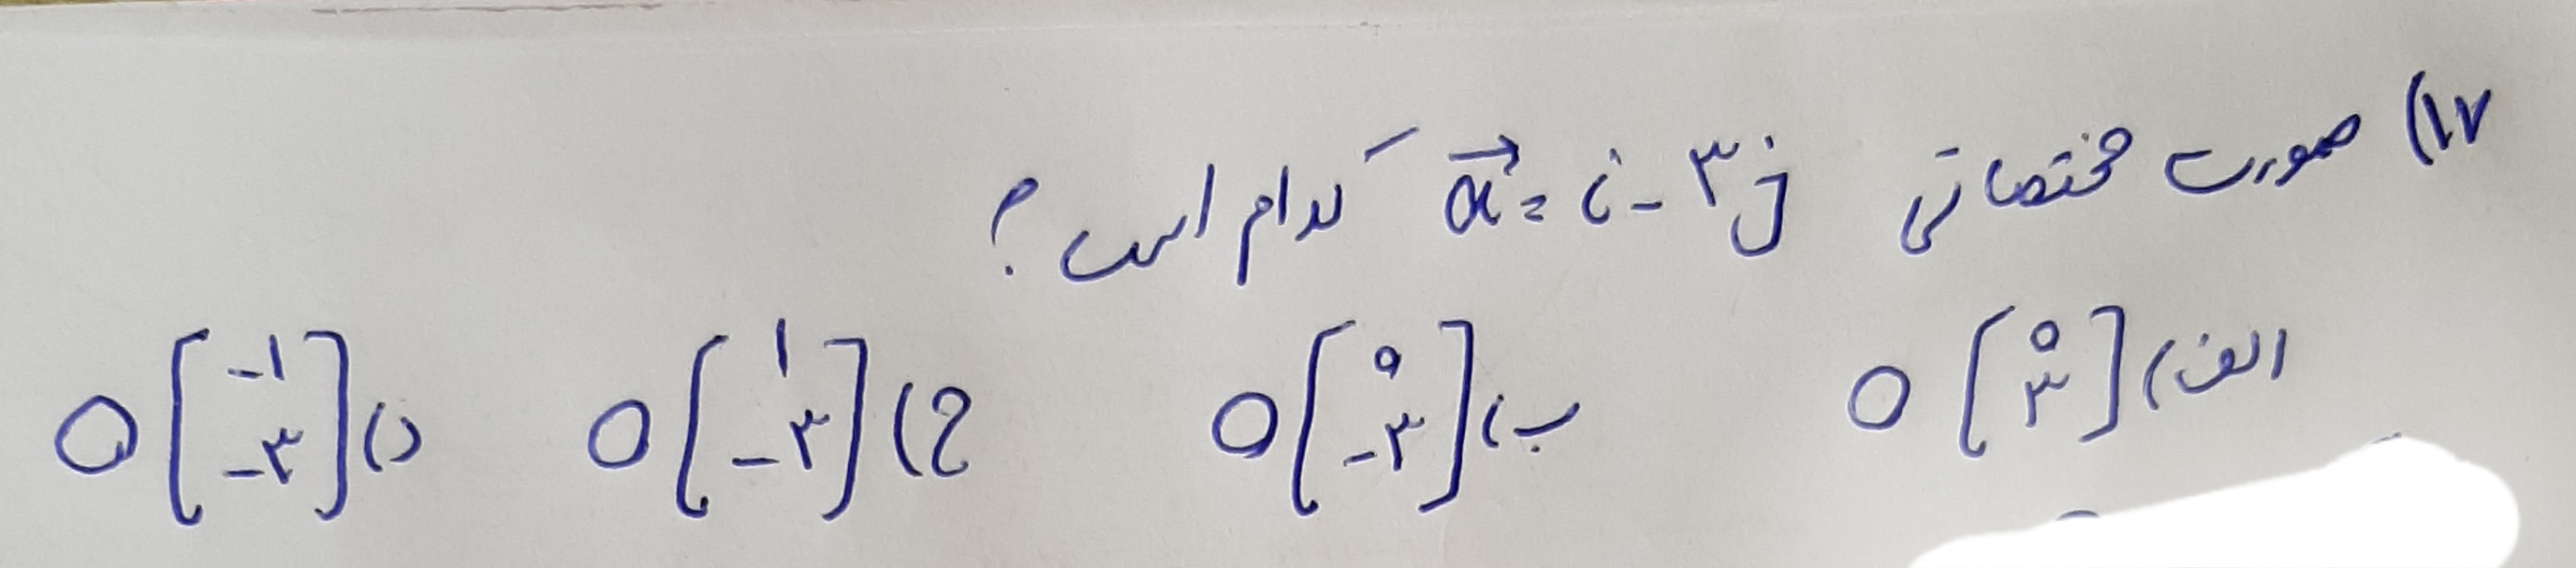 ۱۷) صورت مختصاتی a⃗ = i - ۳j کدام است ؟
الف) [۰ ۳] ب) [۰ -۳] ج) [۱ -۳] د) [-۱ -۳]